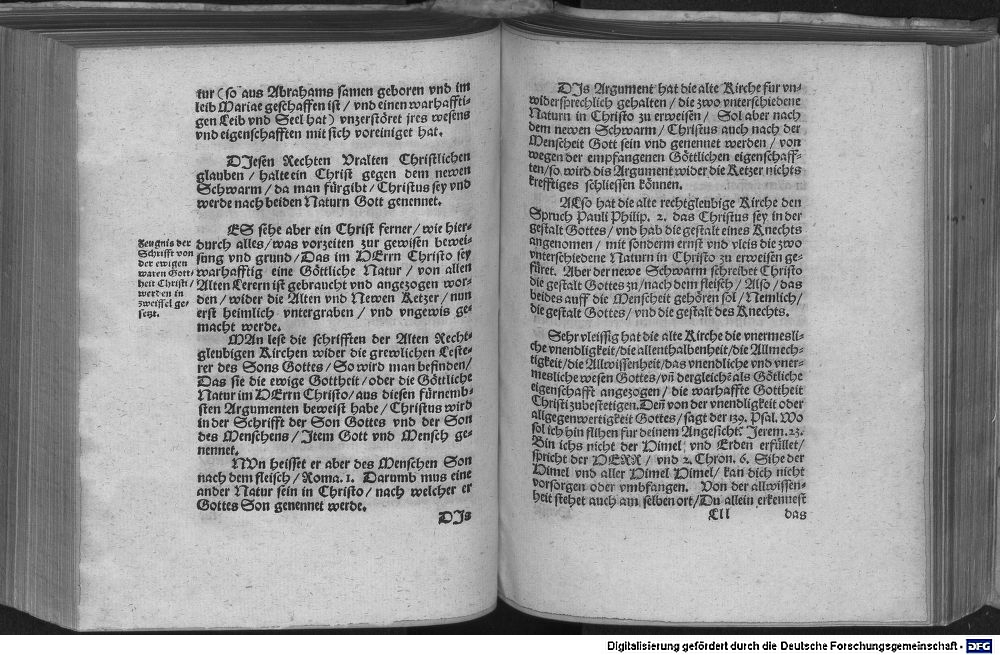 tur (so aus Abrahams samen geboren vnd im
leib Mariae geschaffen ist / vnd einen warhaffti-
gen Leib vnd Seel hat) vnzerstöret jres wesens
vnd eigenschafften mit sich voreiniget hat.
DIesen Rechten Vralten Christlichen
glauben / halte ein Christ gegen dem newen
Schwarm / da man fürgibt / Christus sey vnd
werde nach beiden Naturn Gott genennet.
ES sehe aber ein Christ ferner / wie hier-
durch alles / was vorzeiten zur gewisen bewei-
sung vnd grund / Das im HErrn Christo sey
warhafftig eine Göttliche Natur / von allen
Alten Lerern ist gebraucht vnd angezogen wor-
den / wider die Alten vnd Newen Ketzer / nun
erst heimlich vntergraben / vnd vngewis ge-
macht werde.
Zeugnis der
Schrifft von
der ewigen
waren Gott-
heit Christi /
werden in
zweiffel ge-
setzt.
MAn lese die schrifften der Alten Recht-
gleubigen Kirchen wider die grewlichen Leste-
rer des Sons Gottes / So wird man befinden /
Das sie die ewige Gottheit / oder die Göttliche
Natur im HErrn Christo / aus diesen fürnemb-
sten Argumenten beweist habe / Christus wird
in der Schrifft der Son Gottes vnd der Son
des Menschens / Item Gott vnd Mensch ge-
nennet.
NVn heisset er aber des Menschen Son
nach dem fleisch / Roma. 1. Darumb mus eine
ander Natur sein in Christo / nach welcher er
Gottes Son genennet werde.
DIs
DIs Argument hat die alte Kirche für vn-
widersprechlich gehalten / die zwo vnterschiedene
Naturn in Christo zu erweisen / Sol aber nach
dem newen Schwarm / Christus auch nach der
Menscheit Gott sein vnd genennet werden / von
wegen der empfangenen Göttlichen eigenschaff-
ten / so wird dis Argument wider die Ketzer nichts
krefftiges schliessen können.
ALso hat die alte rechtgleubige Kirche den
Spruch Pauli Philip. 2. das Christus sey in der
gestalt Gottes / vnd hab die gestalt eines Knechts
angenomen / mit sonderm ernst vnd vleis die zwo
vnterschiedene Naturn in Christo zu erweisen ge-
füret. Aber der newe Schwarm schreibet Christo
die gestalt Gottes zu / nach dem fleisch / Also / das
beides auff die Menscheit gehören sol / Nemlich /
die gestalt Gottes / vnd die gestalt des Knechts.
Sehr vleissig hat die alte Kirche die vnermesli-
che vnendligkeit / die allenthalbenheit / die Allmech-
tigkeit / die Allwissenheit / das vnendliche vnd vner-
mesliche wesen Gottes / vñ dergleichẽ als Götliche
eigenschafft angezogen / die warhaffte Gottheit
Christi zubestetigen. Deñ von der vnendligkeit oder
allgegenwertigkeit Gottes / sagt der 139. Psal. Wo
sol ich hin flihen für deinem Angesicht. Jerem. 23.
Bin ichs nicht der Himel vnd Erden erfüllet /
spricht der HERR / vnd 2. Chron. 6. Sihe der
Himel vnd aller Himel Himel / kan dich nicht
vorsorgen oder vmbfangen. Von der allwissen-
heit stehet auch am selben ort / Du allein erkennest
Lll das
Digitalisierung gefördert durch die Deutsche Forschungsgemeinschaft - DFG